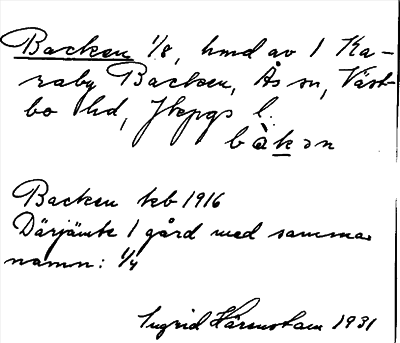 Backen 1/8, hmd av 1 Ka-
raby Backen, Ås sn, Väst-
bo hd, Jkpgs l.
bàkən
Backen kb 1916
Därjämte 1 gård med samma
namn: 1/4
Ingrid 1931